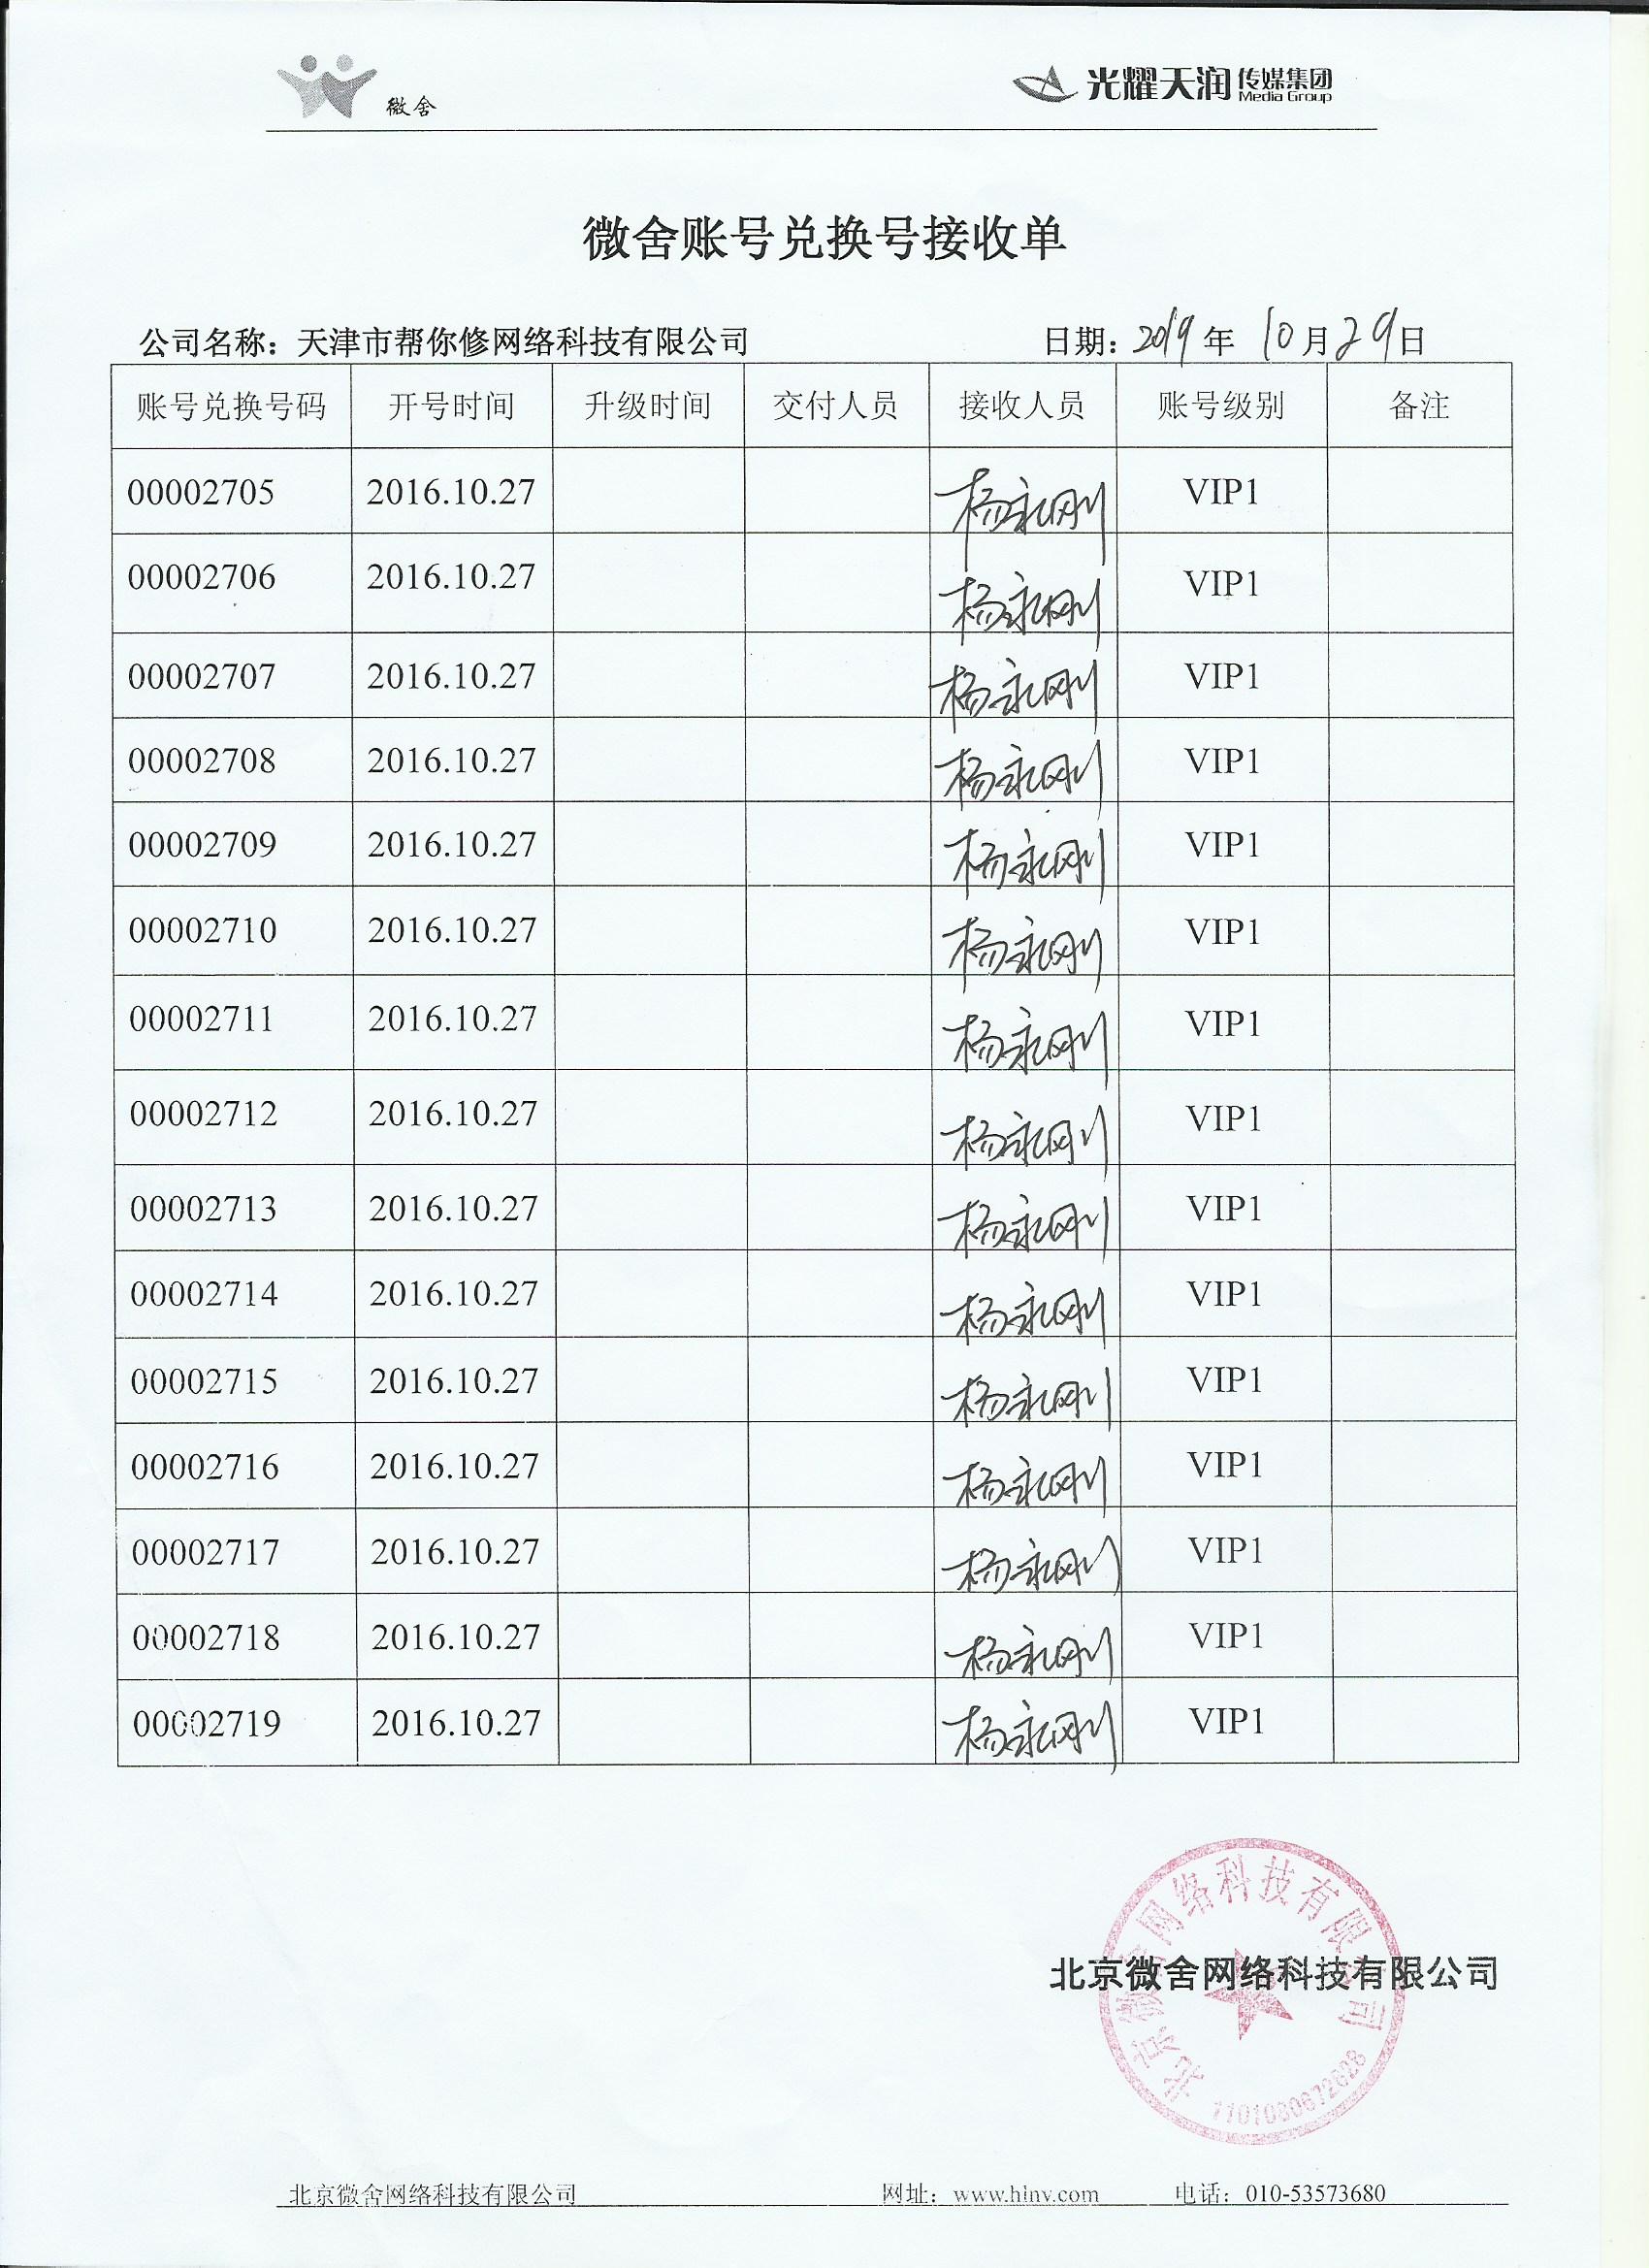 微舍
光耀天润 传媒集团
Media Group
微舍账号兑换号接收单
公司名称：天津市帮你修网络科技有限公司 日期：2019年 10月29日
账号兑换号码 开号时间 升级时间 交付人员 接收人员 账号级别 备注
00002705 2016.10.27 杨永刚 VIP1
00002706 2016.10.27 杨永刚 VIP1
00002707 2016.10.27 杨永刚 VIP1
00002708 2016.10.27 杨永刚 VIP1
00002709 2016.10.27 杨永刚 VIP1
00002710 2016.10.27 杨永刚 VIP1
00002711 2016.10.27 杨永刚 VIP1
00002712 2016.10.27 杨永刚 VIP1
00002713 2016.10.27 杨永刚 VIP1
00002714 2016.10.27 杨永刚 VIP1
00002715 2016.10.27 杨永刚 VIP1
00002716 2016.10.27 杨永刚 VIP1
00002717 2016.10.27 杨永刚 VIP1
00002718 2016.10.27 杨永刚 VIP1
00002719 2016.10.27 杨永刚 VIP1
北京微舍网络科技有限公司
北京微舍网络科技有限公司
1101080672628
北京微舍网络科技有限公司 网址：www.hlnv.com 电话：010-53573680